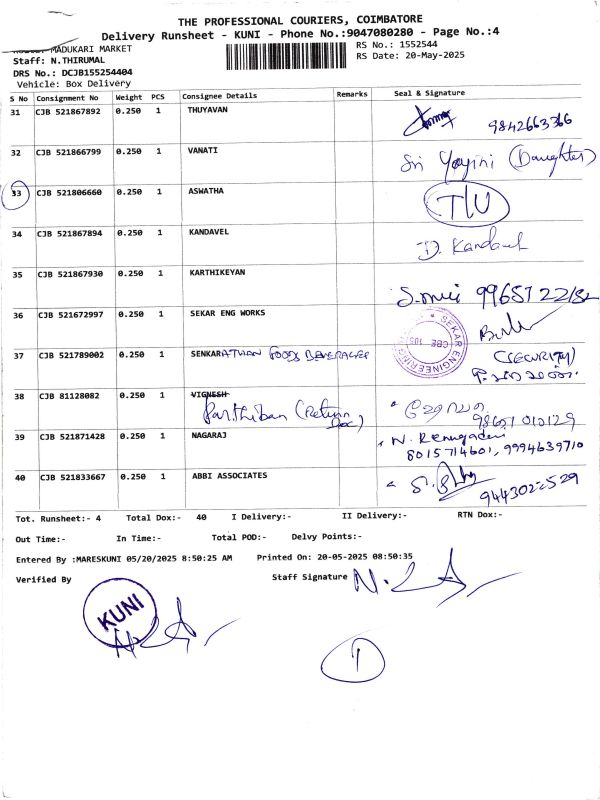 THE PROFESSIONAL COURIERS, COIMBATORE
Delivery Runsheet - KUNI - Phone No.:9047080280 - Page No.:4
MADUKARI MARKET
RS No.: 1552544
Staff: N.THIRUMAL
RS Date: 20-May-2025
DRS No.: DCJB155254404
Vehicle: Box Delivery
S No Consignment No Weight PCS Consignee Details Remarks Seal & Signature
31 CJB 521867892 0.250 1 THUYAVAN 9842663366
32 CJB 521866799 0.250 1 VANATI Sri Yogini (Daughter)
33 CJB 521806660 0.250 1 ASWATHA T/U
34 CJB 521867894 0.250 1 KANDAVEL D. Kandavel
35 CJB 521867930 0.250 1 KARTHIKEYAN
36 CJB 521672997 0.250 1 SEKAR ENG WORKS
SEKAR ENGINEERING
37 CJB 521789002 0.250 1 SENKARATHAN FOODS BEVERAGES (SECURITY)
38 CJB 81128082 0.250 1 VIGNESH
Parthiban (Return Doc)
39 CJB 521871428 0.250 1 NAGARAJ N. Renugadevi
8015714601, 9994639710
40 CJB 521833667 0.250 1 ABBI ASSOCIATES
Tot. Runsheet:- 4 Total Dox:- 40 I Delivery:- II Delivery:- RTN Dox:-
Out Time:- In Time:- Total POD:- Delvy Points:-
Entered By :MARESKUNI 05/20/2025 8:50:25 AM Printed On: 20-05-2025 08:50:35
Verified By Staff Signature
KUNI
1